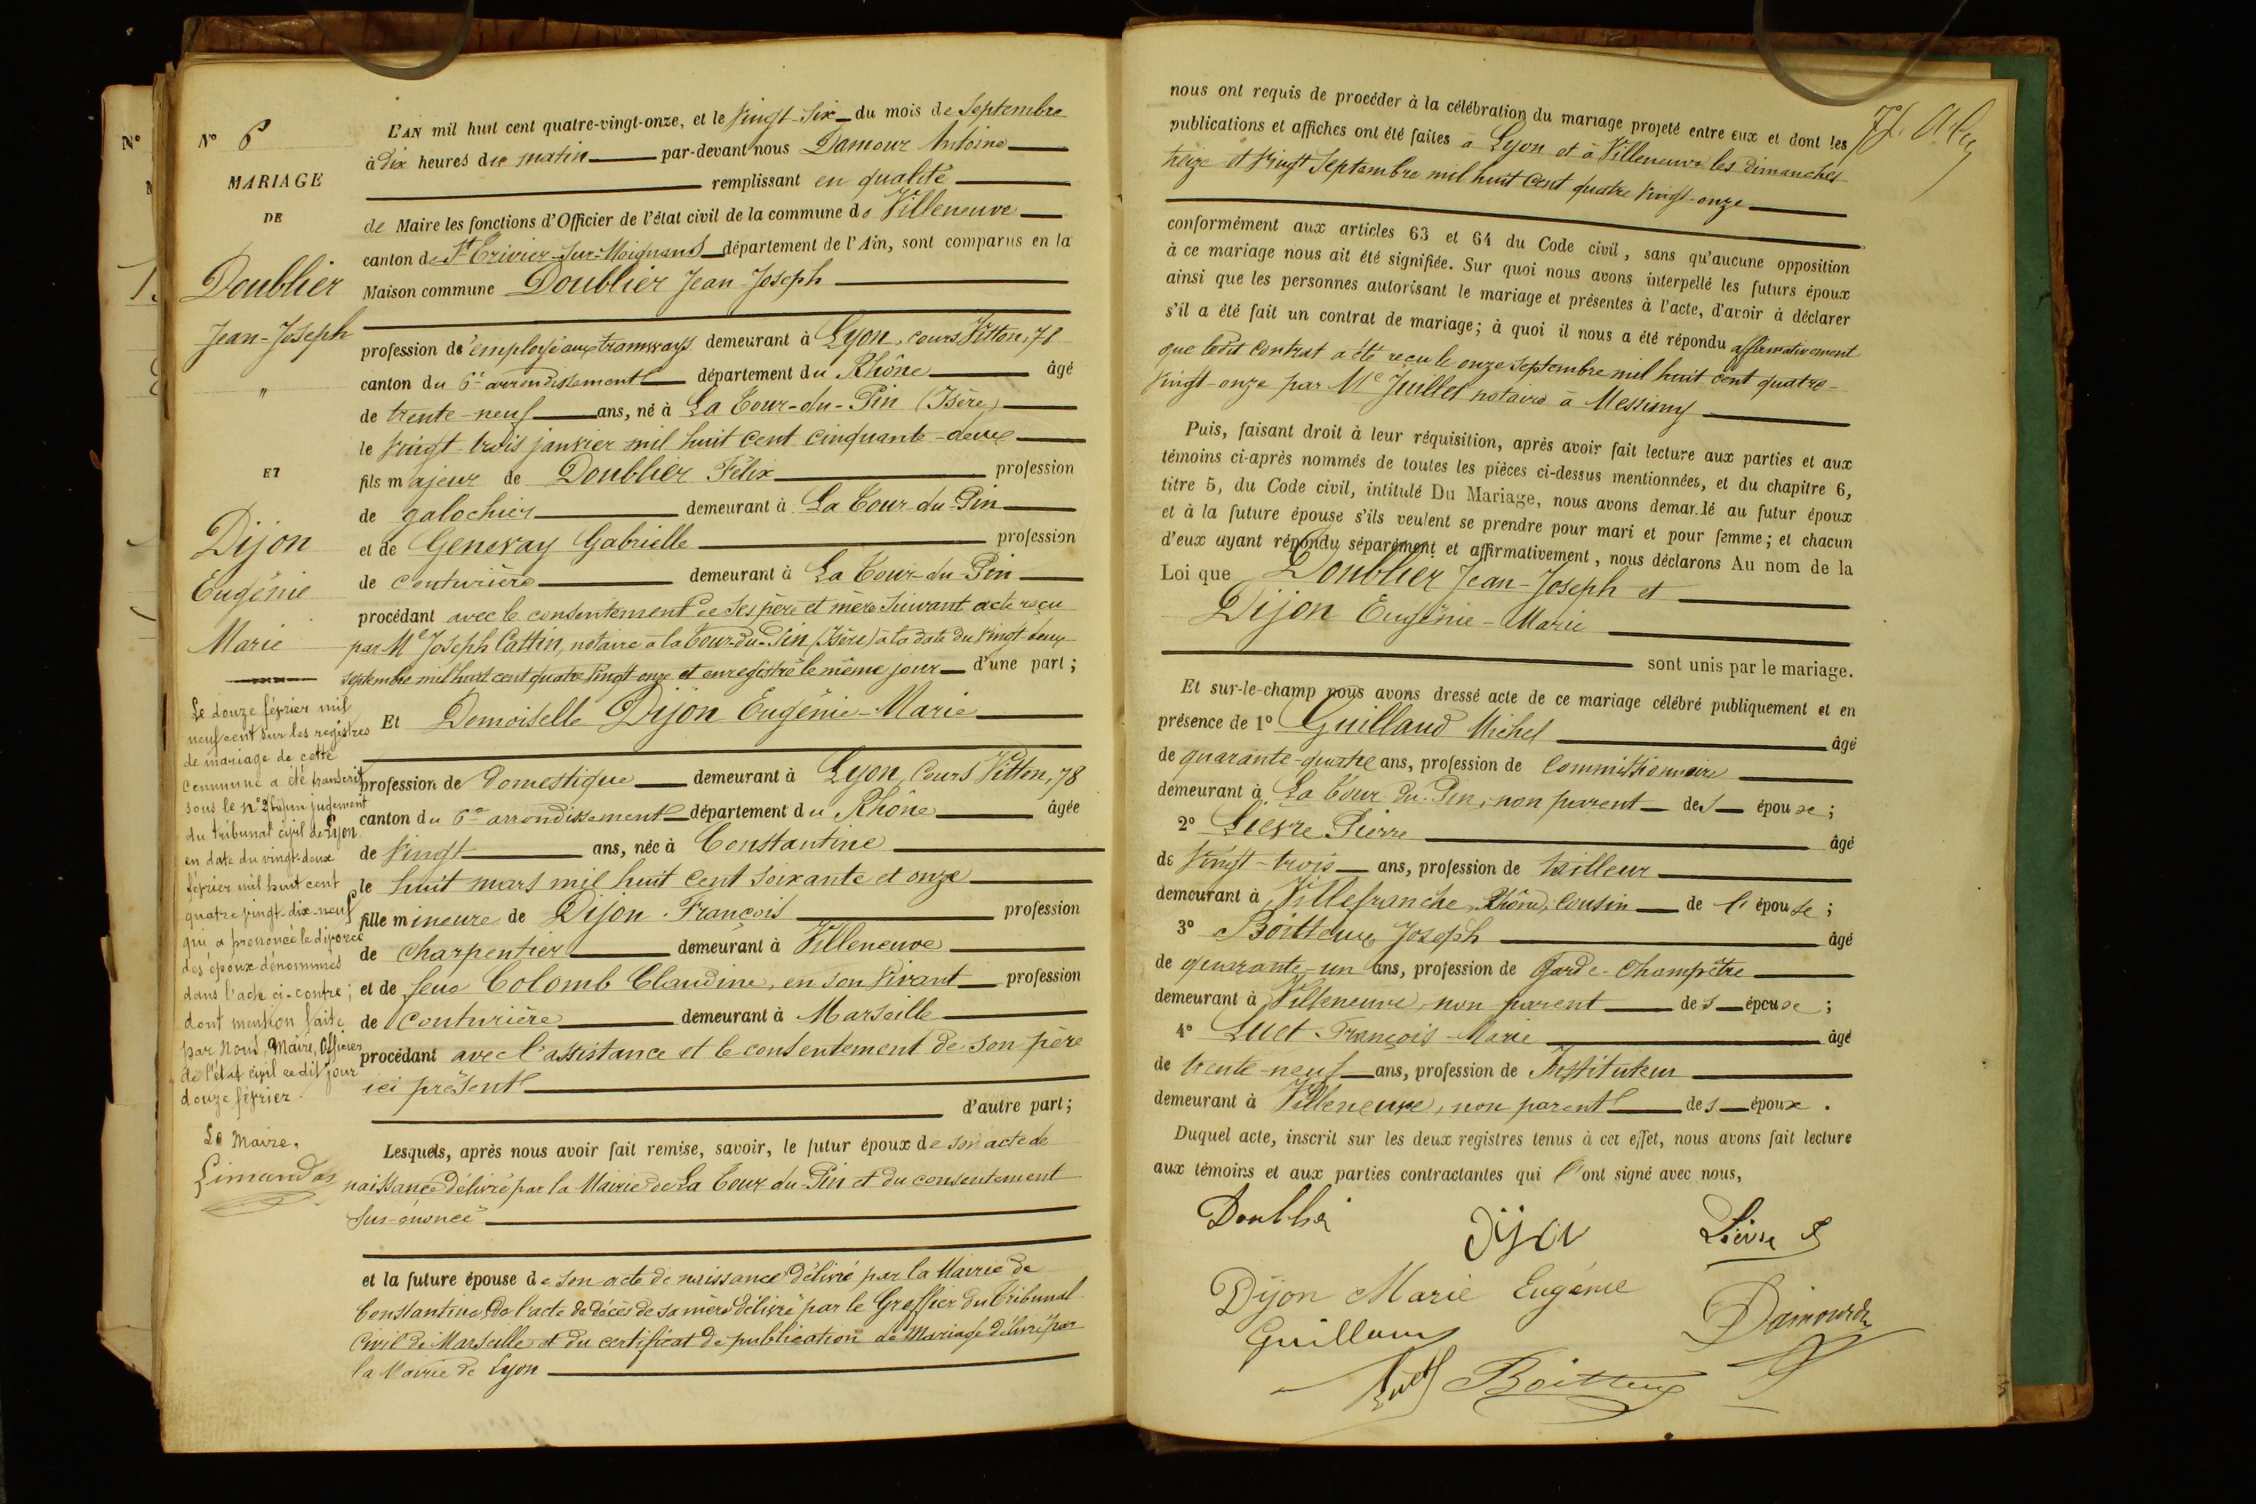 N°
N° 6
MARIAGE
DE
Doublier
Jean-Joseph
"
ET
Dijon
Eugénie
Marie
Le douze février mil
neuf cent sur les registres
de mariage de cette
commune a été transcrit
sous le n° 2 un jugement
du tribunal civil de Lyon
en date du vingt-deux
février mil huit cent
quatre vingt-dix-neuf
qui a prononcé le divorce
des époux dénommés
dans l'acte ci-contre;
dont mention faite
par Nous, Maire, Officier
de l'état civil ce dit jour
douze février.
Le Maire,
Limandas
L'AN mil huit cent quatre-vingt-onze, et le vingt-six du mois de Septembre
à dix heures du matin par-devant nous Damour Antoine
remplissant en qualité
de Maire les fonctions d'Officier de l'état civil de la commune de Villeneuve
canton de St Trivier-sur-Moignans département de l'Ain, sont comparus en la
Maison commune Doublier Jean-Joseph
profession d'employé aux tramways demeurant à Lyon, cours Vitton, 78
canton du 6e arrondissement département du Rhône âgé
de trente-neuf ans, né à La Tour-du-Pin (Isère)
le vingt-trois janvier mil huit cent cinquante-deux
fils majeur de Doublier Félix profession
de galochier demeurant à La Tour-du-Pin
et de Genevay Gabrielle profession
de couturière demeurant à La Tour-du-Pin
procédant avec le consentement de ses père et mère suivant acte reçu
par Me Joseph Cattin, notaire à la Tour-du-Pin (Isère) à la date du vingt-deux
septembre mil huit cent quatre vingt-onze et enregistré le même jour d'une part;
Et Demoiselle Dijon Eugénie-Marie
profession de domestique demeurant à Lyon, Cours Vitton, 78
canton du 6e arrondissement département du Rhône âgée
de vingt ans, née à Constantine
le huit mars mil huit cent soixante et onze
fille mineure de Dijon François profession
de charpentier demeurant à Villeneuve
et de feue Colomb Claudine, en son vivant profession
de couturière demeurant à Marseille
procédant avec l'assistance et le consentement de son père
ici présent
d'autre part;
Lesquels, après nous avoir fait remise, savoir, le futur époux de son acte de
naissance délivré par la Mairie de La Tour du-Pin et du consentement
sus-énoncé
et la future épouse de son acte de naissance délivré par la Mairie de
Constantine, de l'acte de décès de sa mère délivré par le Greffier du Tribunal
Civil de Marseille et du certificat de publication de Mariage délivré par
la Mairie de Lyon
nous ont requis de procéder à la célébration du mariage projeté entre eux et dont les
publications et affiches ont été faites à Lyon et à Villeneuve les dimanches
treize et vingt Septembre mil huit cent quatre vingt-onze
conformément aux articles 63 et 64 du Code civil, sans qu'aucune opposition
à ce mariage nous ait été signifiée. Sur quoi nous avons interpellé les futurs époux
ainsi que les personnes autorisant le mariage et présentes à l'acte, d'avoir à déclarer
s'il a été fait un contrat de mariage; à quoi il nous a été répondu affirmativement
que ledit contrat a été reçu le onze septembre mil huit cent quatre-
vingt-onze par Me Juillet notaire à Messimy
Puis, faisant droit à leur réquisition, après avoir fait lecture aux parties et aux
témoins ci-après nommés de toutes les pièces ci-dessus mentionnées, et du chapitre 6,
titre 5, du Code civil, intitulé Du Mariage, nous avons demandé au futur époux
et à la future épouse s'ils veulent se prendre pour mari et pour femme; et chacun
d'eux ayant répondu séparément et affirmativement, nous déclarons Au nom de la
Loi que Doublier Jean-Joseph et
Dijon Eugénie-Marie
sont unis par le mariage.
Et sur-le-champ nous avons dressé acte de ce mariage célébré publiquement et en
présence de 1° Guillaud Michel âgé
de quarante-quatre ans, profession de commissionnaire
demeurant à La Tour-du-Pin, non parent des épouse;
2° Lièvre Pierre âgé
de vingt-trois ans, profession de tailleur
demeurant à Villefranche, Rhône, cousin de l'épouse;
3° Boitteux Joseph âgé
de quarante-un ans, profession de Garde-champêtre
demeurant à Villeneuve, non parent des épouse;
4° Luet François-Marie âgé
de trente-neuf ans, profession de Instituteur
demeurant à Villeneuve, non parent des époux.
Duquel acte, inscrit sur les deux registres tenus à cet effet, nous avons fait lecture
aux témoins et aux parties contractantes qui l'ont signé avec nous,
Doublier
Dijon
Lièvre P
Dijon Marie Eugénie
Damour
Guillaud
Luet
Boitteux